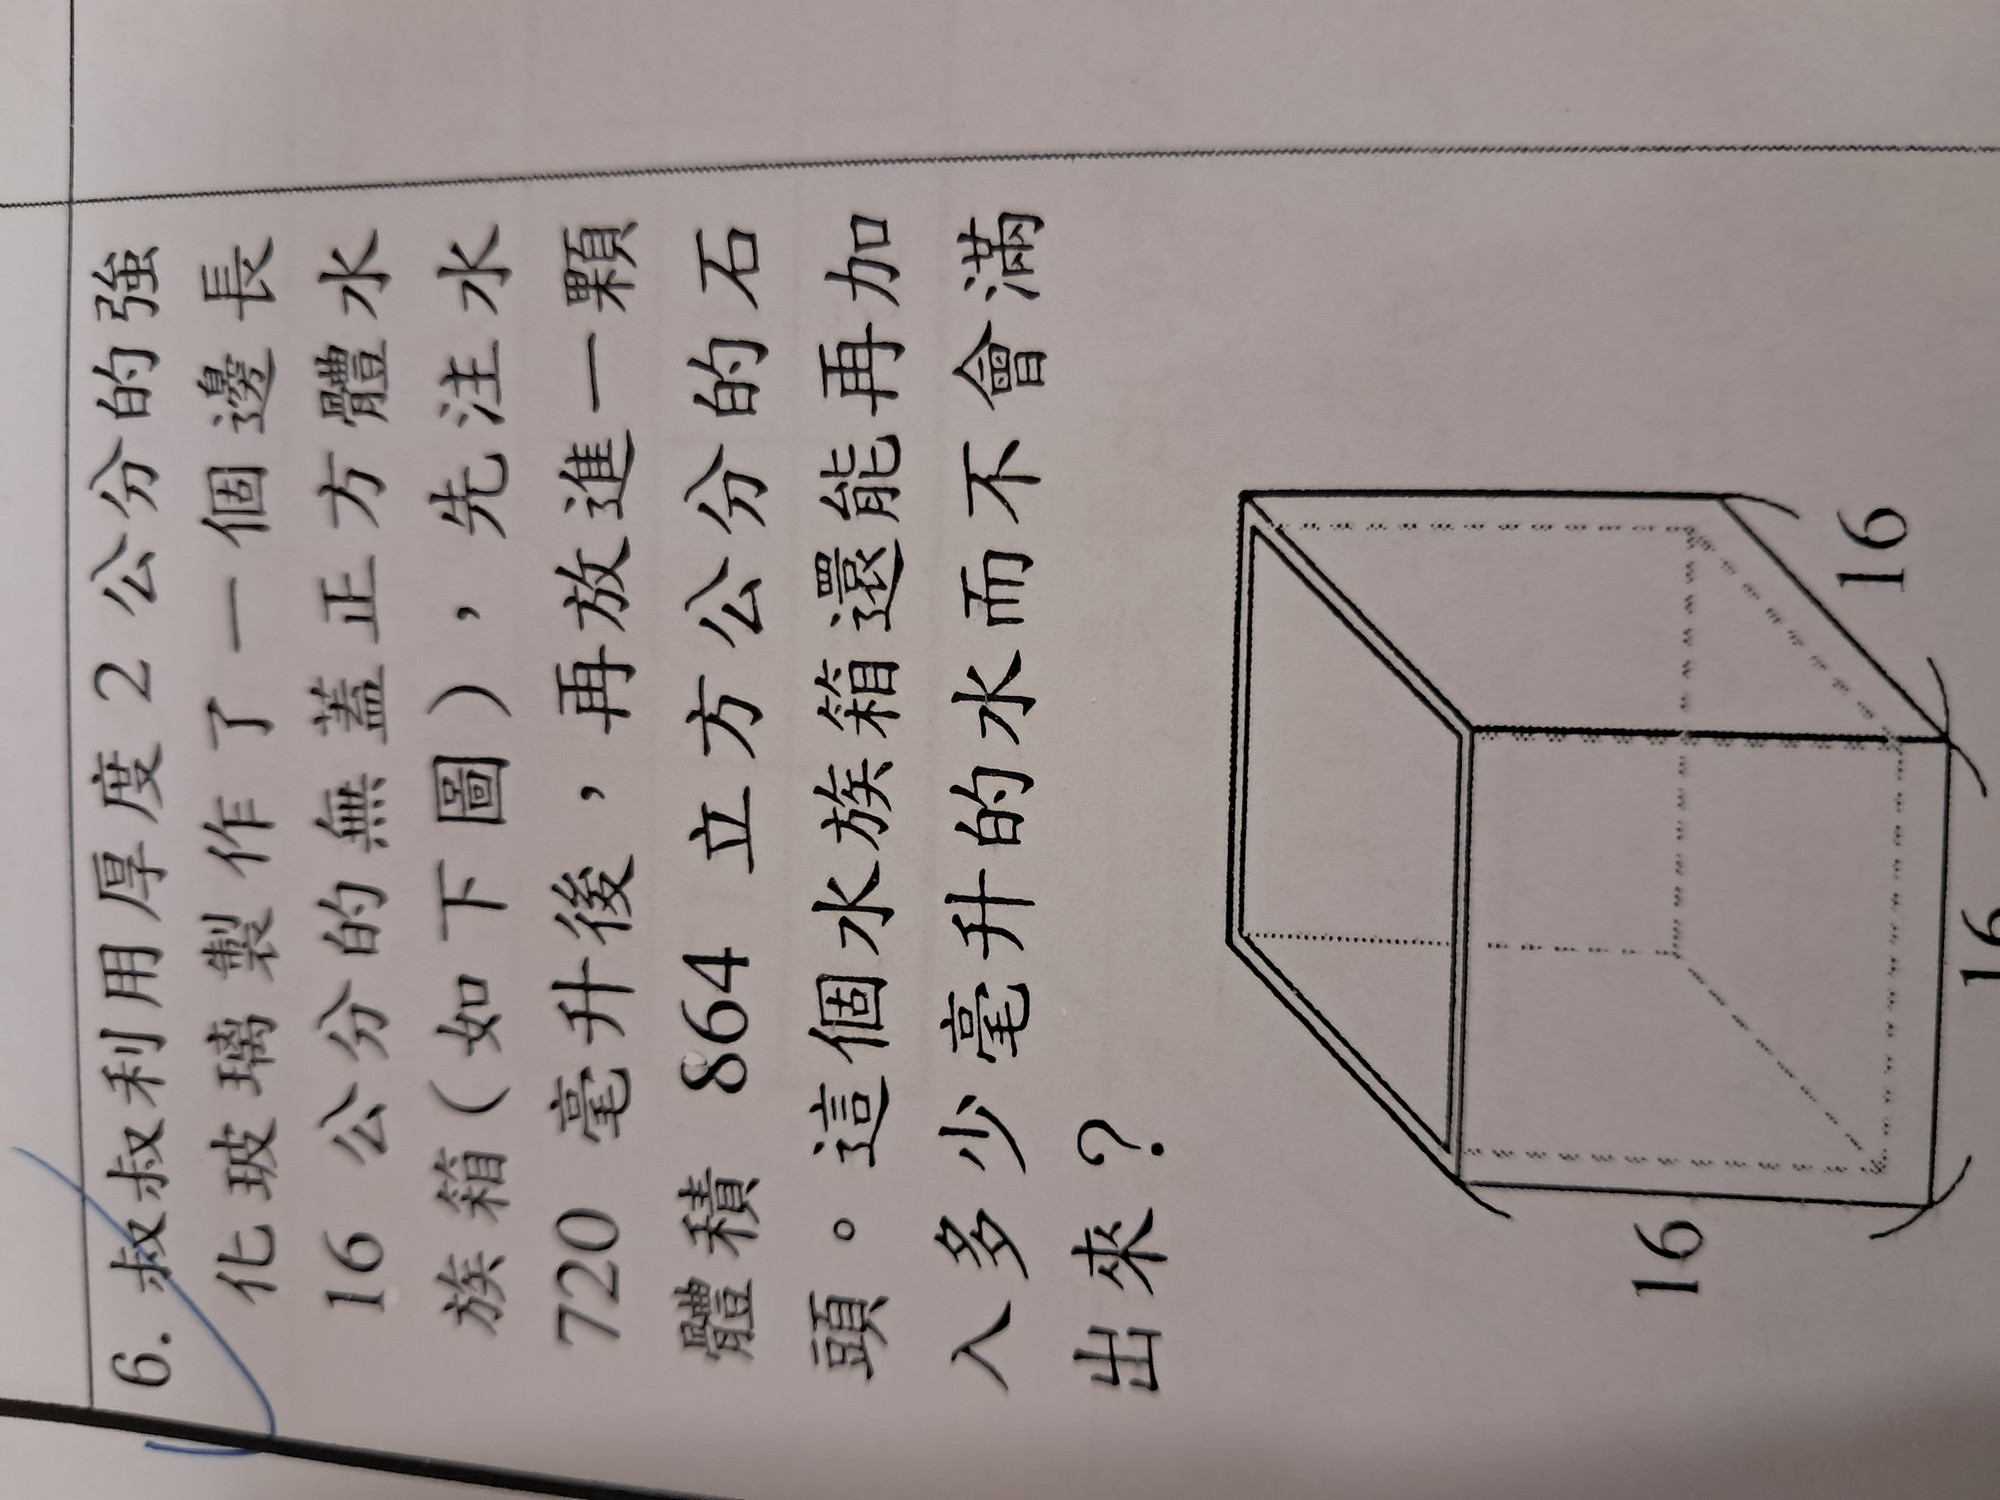 6. 叔叔利用厚度 2 公分的強
化玻璃製作了一個邊長
16 公分的無蓋正方體水
族箱(如下圖)，先注水
720 毫升後，再放進一顆
體積 864 立方公分的石
頭。這個水族箱還能再加
入多少毫升的水而不會滿
出來？
16
16
16